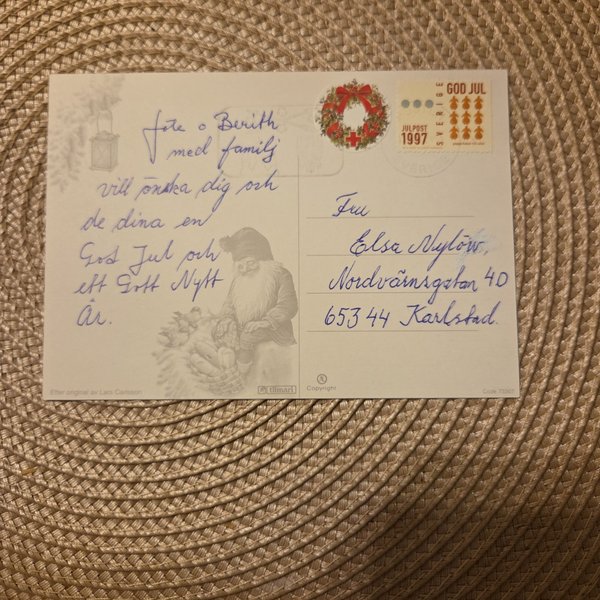 Jote o Berith
med familj
vill önska dig och
de dina en
God Jul och
ett Gott Nytt
År.
GOD JUL
SVERIGE
JULPOST
1997
Fru
Elsa Nylöw.
Nordvärnsgatan 4D
653 44 Karlstad.
Efter original av Lars Carlsson
tilmari
Copyright